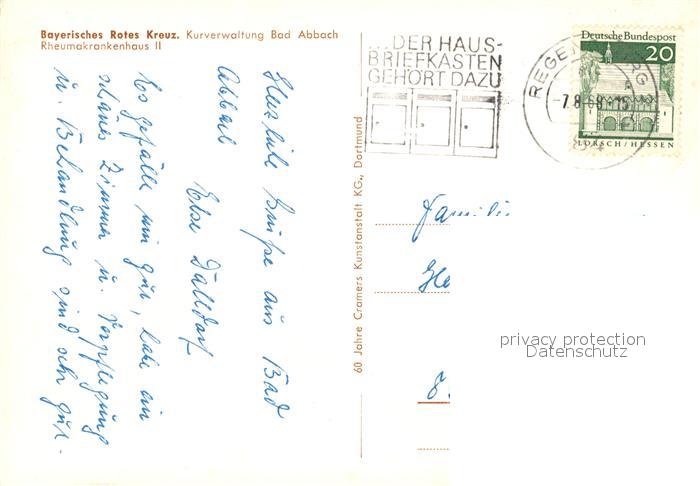 Bayerisches Rotes Kreuz. Kurverwaltung Bad Abbach
Rheumakrankenhaus II
Herzliche Grüße aus Bad
Abbach
Else Dalldorf
Es gefällt mir gut, habe ein
schönes Zimmer u. Verpflegung
u. Behandlung sind sehr gut.
60 Jahre Cramers Kunstanstalt KG., Dortmund
... DER HAUS-
BRIEFKASTEN
GEHÖRT DAZU
REGE
RG
-7.8.69-18
Deutsche Bundespost
20
LORSCH/HESSEN
Familie
He
8
privacy protection
Datenschutz